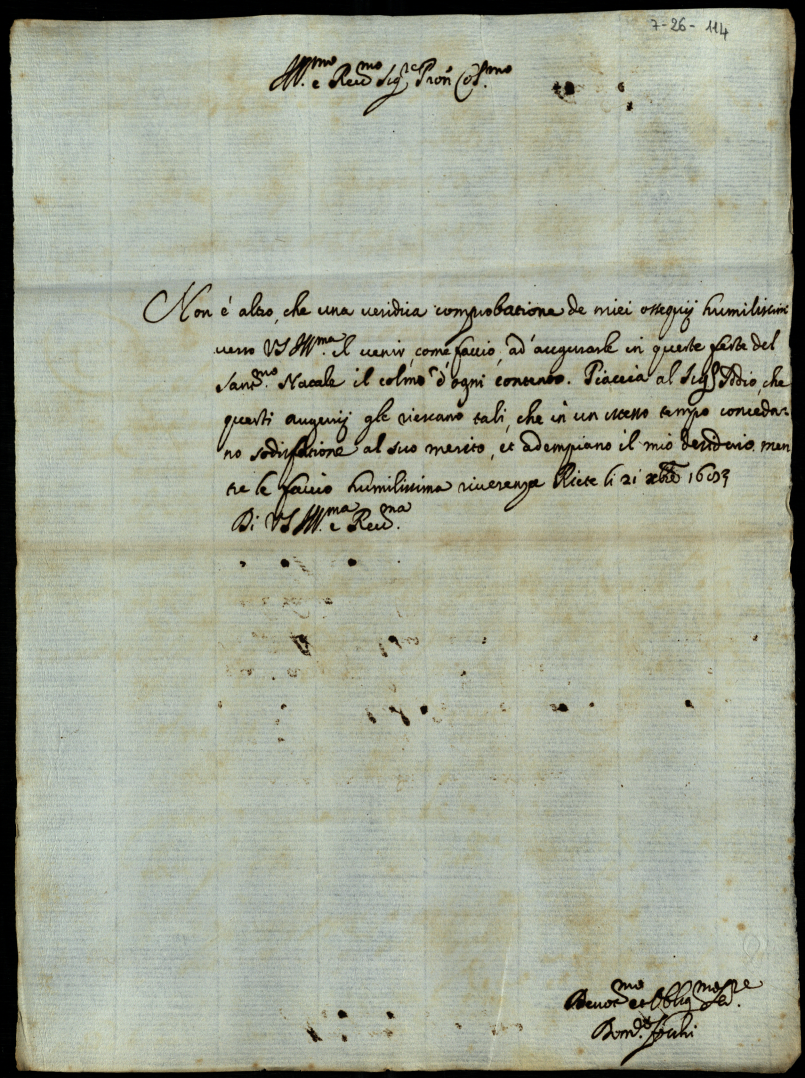 7-26-114
Ill.mo e Rev.mo Sig.re Pron Col.mo
Non é altro, che una veridica comprobatione de miei ossequij humilissimi
verso VS Ill.ma il venir, come faccio, ad'augurarle in queste feste del
Sant.mo Natale il colmo d'ogni contento. Piaccia al Sig.r Iddio, che
questi augurij gli riescano tali, che in un istesso tempo conceda-
no sodisfatione al suo merito, et adempiano il mio desiderio. men
tre le faccio humilissima riverenza Riete li 21 xbre
Di VS Ill.ma e Rev.ma
Devot.mo et Oblig.mo Se.re
Dom.co